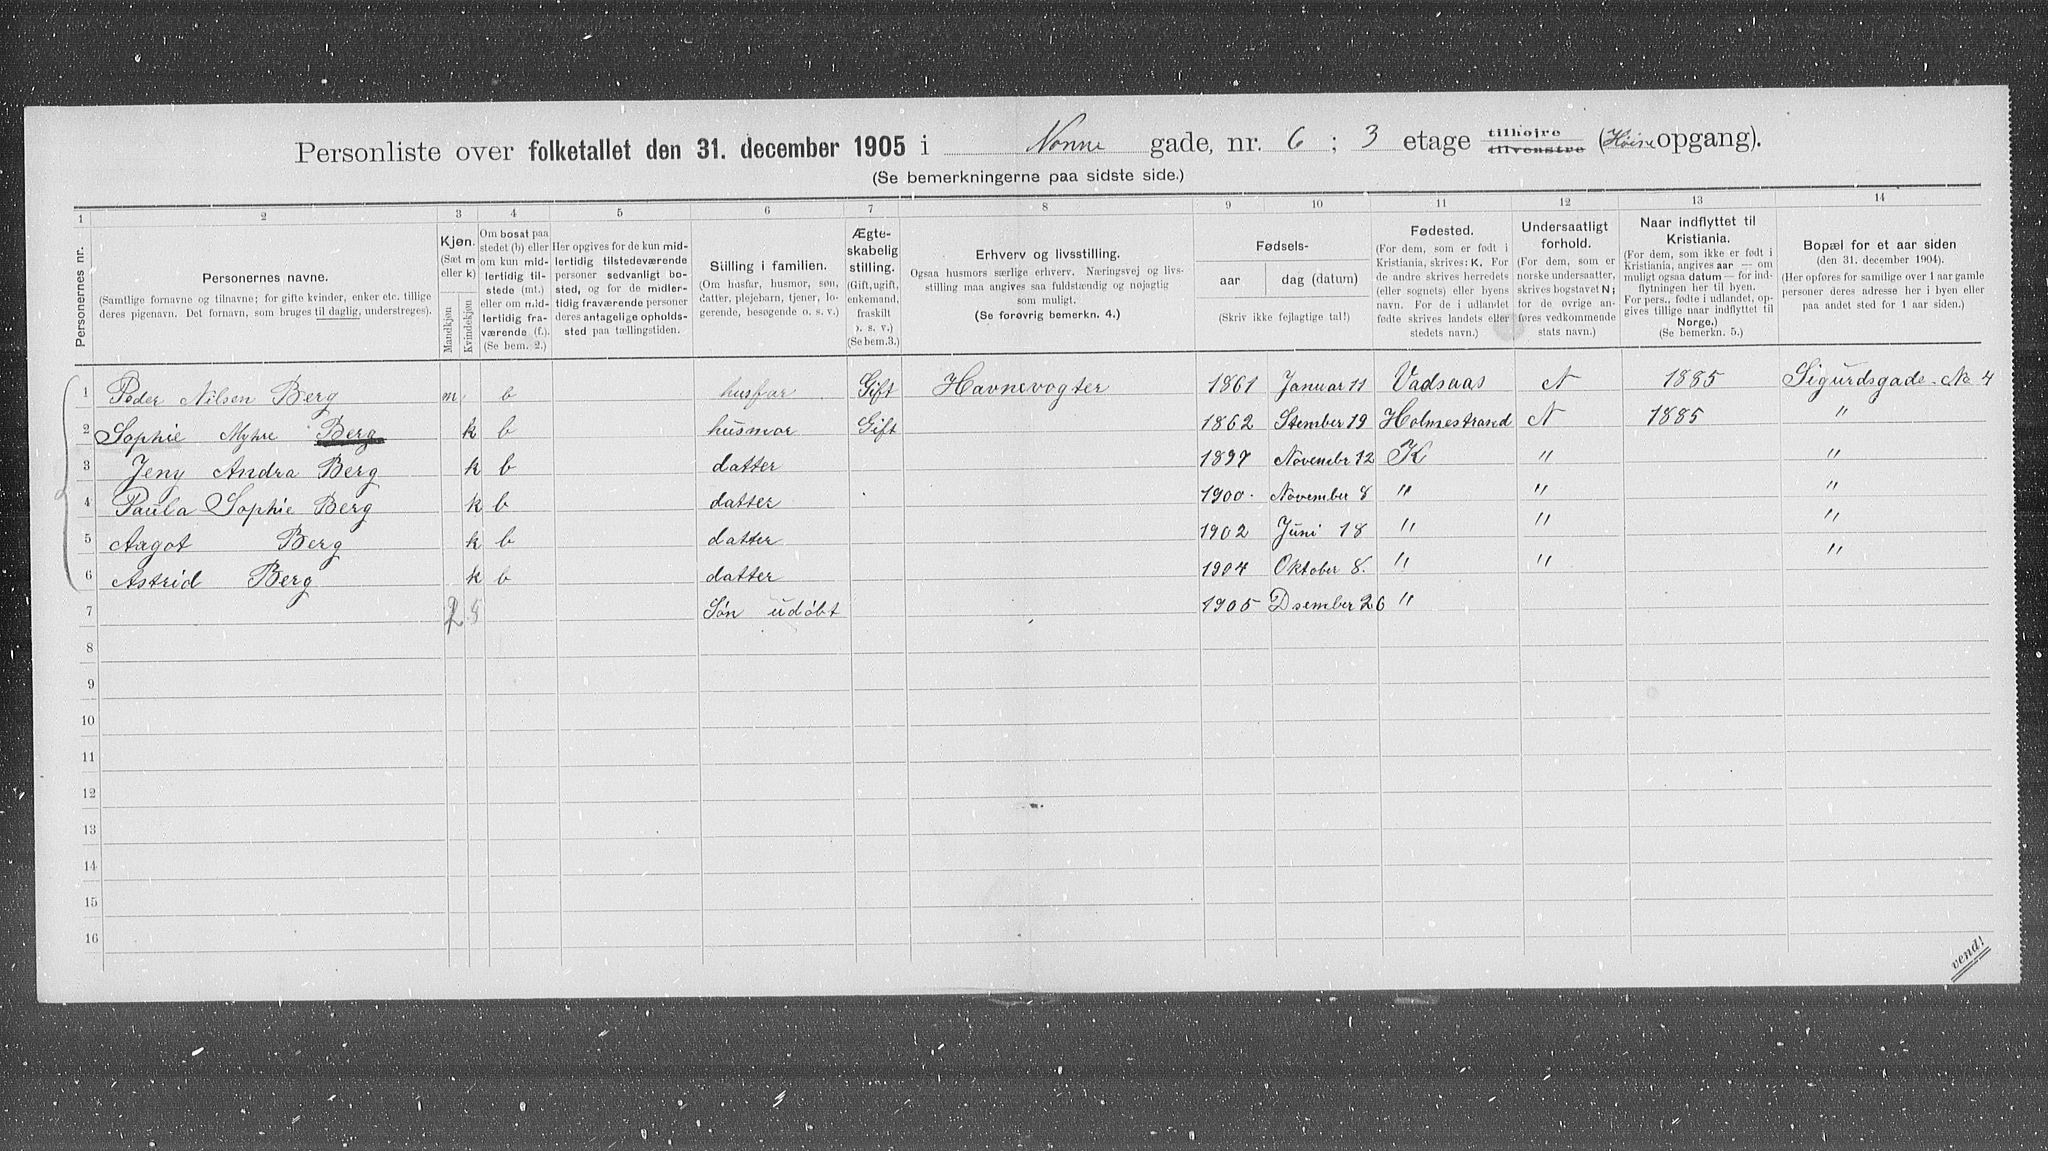 Personliste over folketallet den 31. december 1905 i Nonne gade, nr. 6 ; 3 etage tilhøjre tilvenstre (Høire opgang).
(Se bemerkningerne paa sidste side.)
1 2 3 4 5 6 7 8 9 10 11 12 13 14
Personernes nr.
Personernes navne.
(Samtlige fornavne og tilnavne; for gifte kvinder, enker etc. tillige
deres pigenavn. Det fornavn, som bruges til daglig, understreges).
Kjøn.
(Sæt m
eller k)
Mandkjøn
Kvindekjøn
Om bosat paa
stedet (b) eller
om kun mid-
lertidig til-
stede (mt.)
eller om mid-
lertidig fra-
værende (f.).
(Se bem. 2.)
Her opgives for de kun mid-
lertidig tilstedeværende
personer sedvanlig bo-
sted, og for de midler-
tidig fraværende personer
deres antagelige opholds-
sted paa tællingstiden.
Stilling i familien.
(Om husfar, husmor, søn,
datter, plejebarn, tjener, lo-
gerende, besøgende o. s. v.)
Ægte-
skabelig
stilling.
(Gift, ugift,
enkemand,
fraskilt
o. s. v.)
(Se bem.3.)
Erhverv og livsstilling.
Ogsaa husmors særlige erhverv. Næringsvej og livs-
stilling maa angives saa fuldstændig og nøjagtig
som muligt.
(Se forøvrig bemerkn. 4.)
Fødsels-
aar
dag (datum)
(Skriv ikke fejlagtige tal!)
Fødested.
(For dem, som er født i
Kristiania, skrives: K. For
de andre skrives herredets
(eller sognets) eller byens
navn. For de i udlandet
fødte skrives landets eller
stedets navn.)
Undersaatligt
forhold.
(For dem, som er
norske undersaatter,
skrives bogstavet N;
for de øvrige an-
føres vedkommende
stats navn.)
Naar indflyttet til
Kristiania.
(For dem, som ikke er født i
Kristiania, angives aar — om
muligt ogsaa datum — for ind-
flytningen her til byen.
For pers., fødte i udlandet, op-
gives tillige naar indflyttet til
Norge.)
(Se bemerkn. 5.)
Bopæl for et aar siden
(den 31. december 1904).
(Her opføres for samtlige over 1 aar gamle
personer deres adresse her i byen eller
paa andet sted for 1 aar siden.)
1 Peder Nilsen Berg m b husfar Gift Havnevogter 1861 Januar 11 Vadsaas N 1885 Sigurdsgade No 4
2 Sophie Myhre Berg k b husmor Gift 1862 Stember 19 Holmestrand N 1885 "
3 Jeny Andra Berg k b datter 1897 Novembr 12 K " "
4 Paula Sophie Berg k b datter 1900. November 8 " " "
5 Aagot Berg k b datter 1902 Juni 18 " " "
6 Astrid Berg k b datter 1904 Oktober 8. " " "
7 2 5 Søn udøbt 1905 Dsember 26 "
8
9
10
11
12
13
14
15
16
vend!